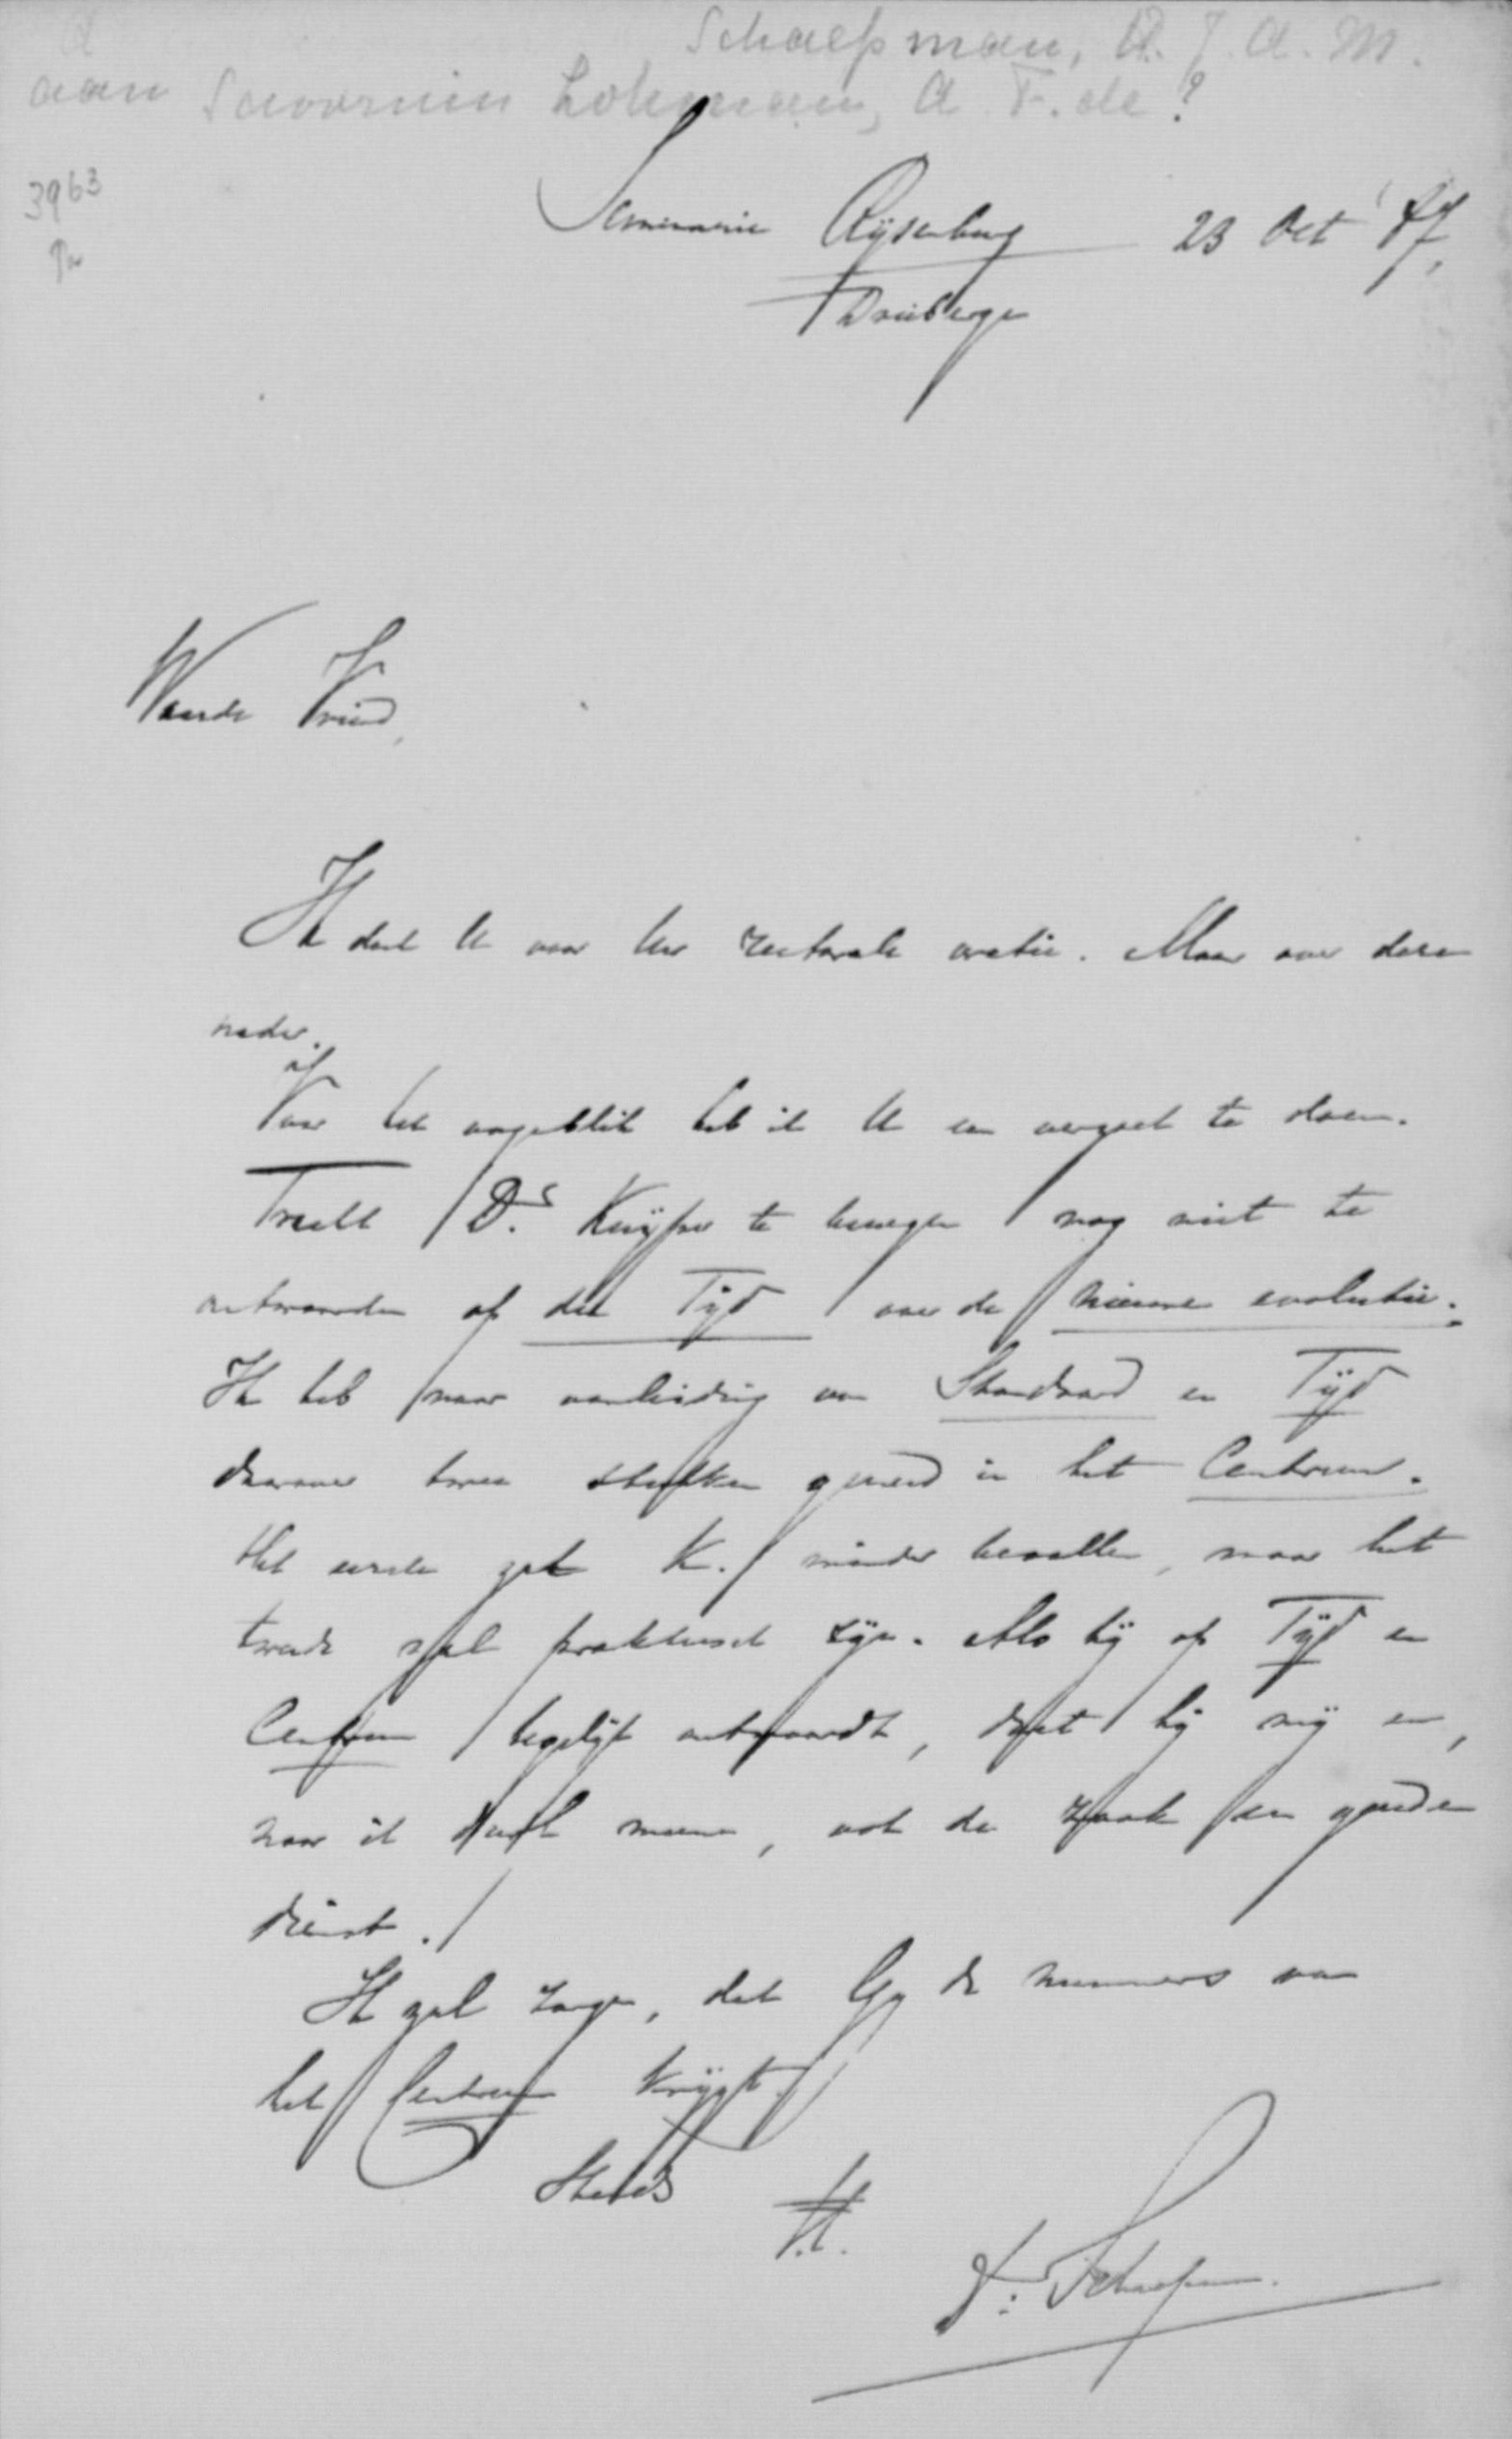 Schaepman, H. J. A. M.
aan Savornin Lohman, A. F. de?
3963
Seminarie Rijsenburg 23 Oct '87,
Driebergen
Waarde Vriend,
Ik dank U voor Uw rectorale oratie. Maar over deze
nader.
Voor het oogenblik heb ik U een verzoek te doen.
Tracht Dr. Kuijper te bewegen nog niet te
antwoorden op den Tijd over de nieuwe evolutie.
Ik heb naar aanleiding van Standaard en Tijd
daarover twee stukken gereed in het Centrum.
Het eerste zal K. minder bevallen, maar het
tweede zal praktisch zijn. Als hij op Tijd en
Centrum tegelijk antwoordt, doet hij mij en,
naar ik denk meen, ook de zaak een goeden
dienst.
Ik zal zorgen, dat Gij de nummers van
het Centrum krijgt.
Steeds
t.t.
Dr. Schaepman.